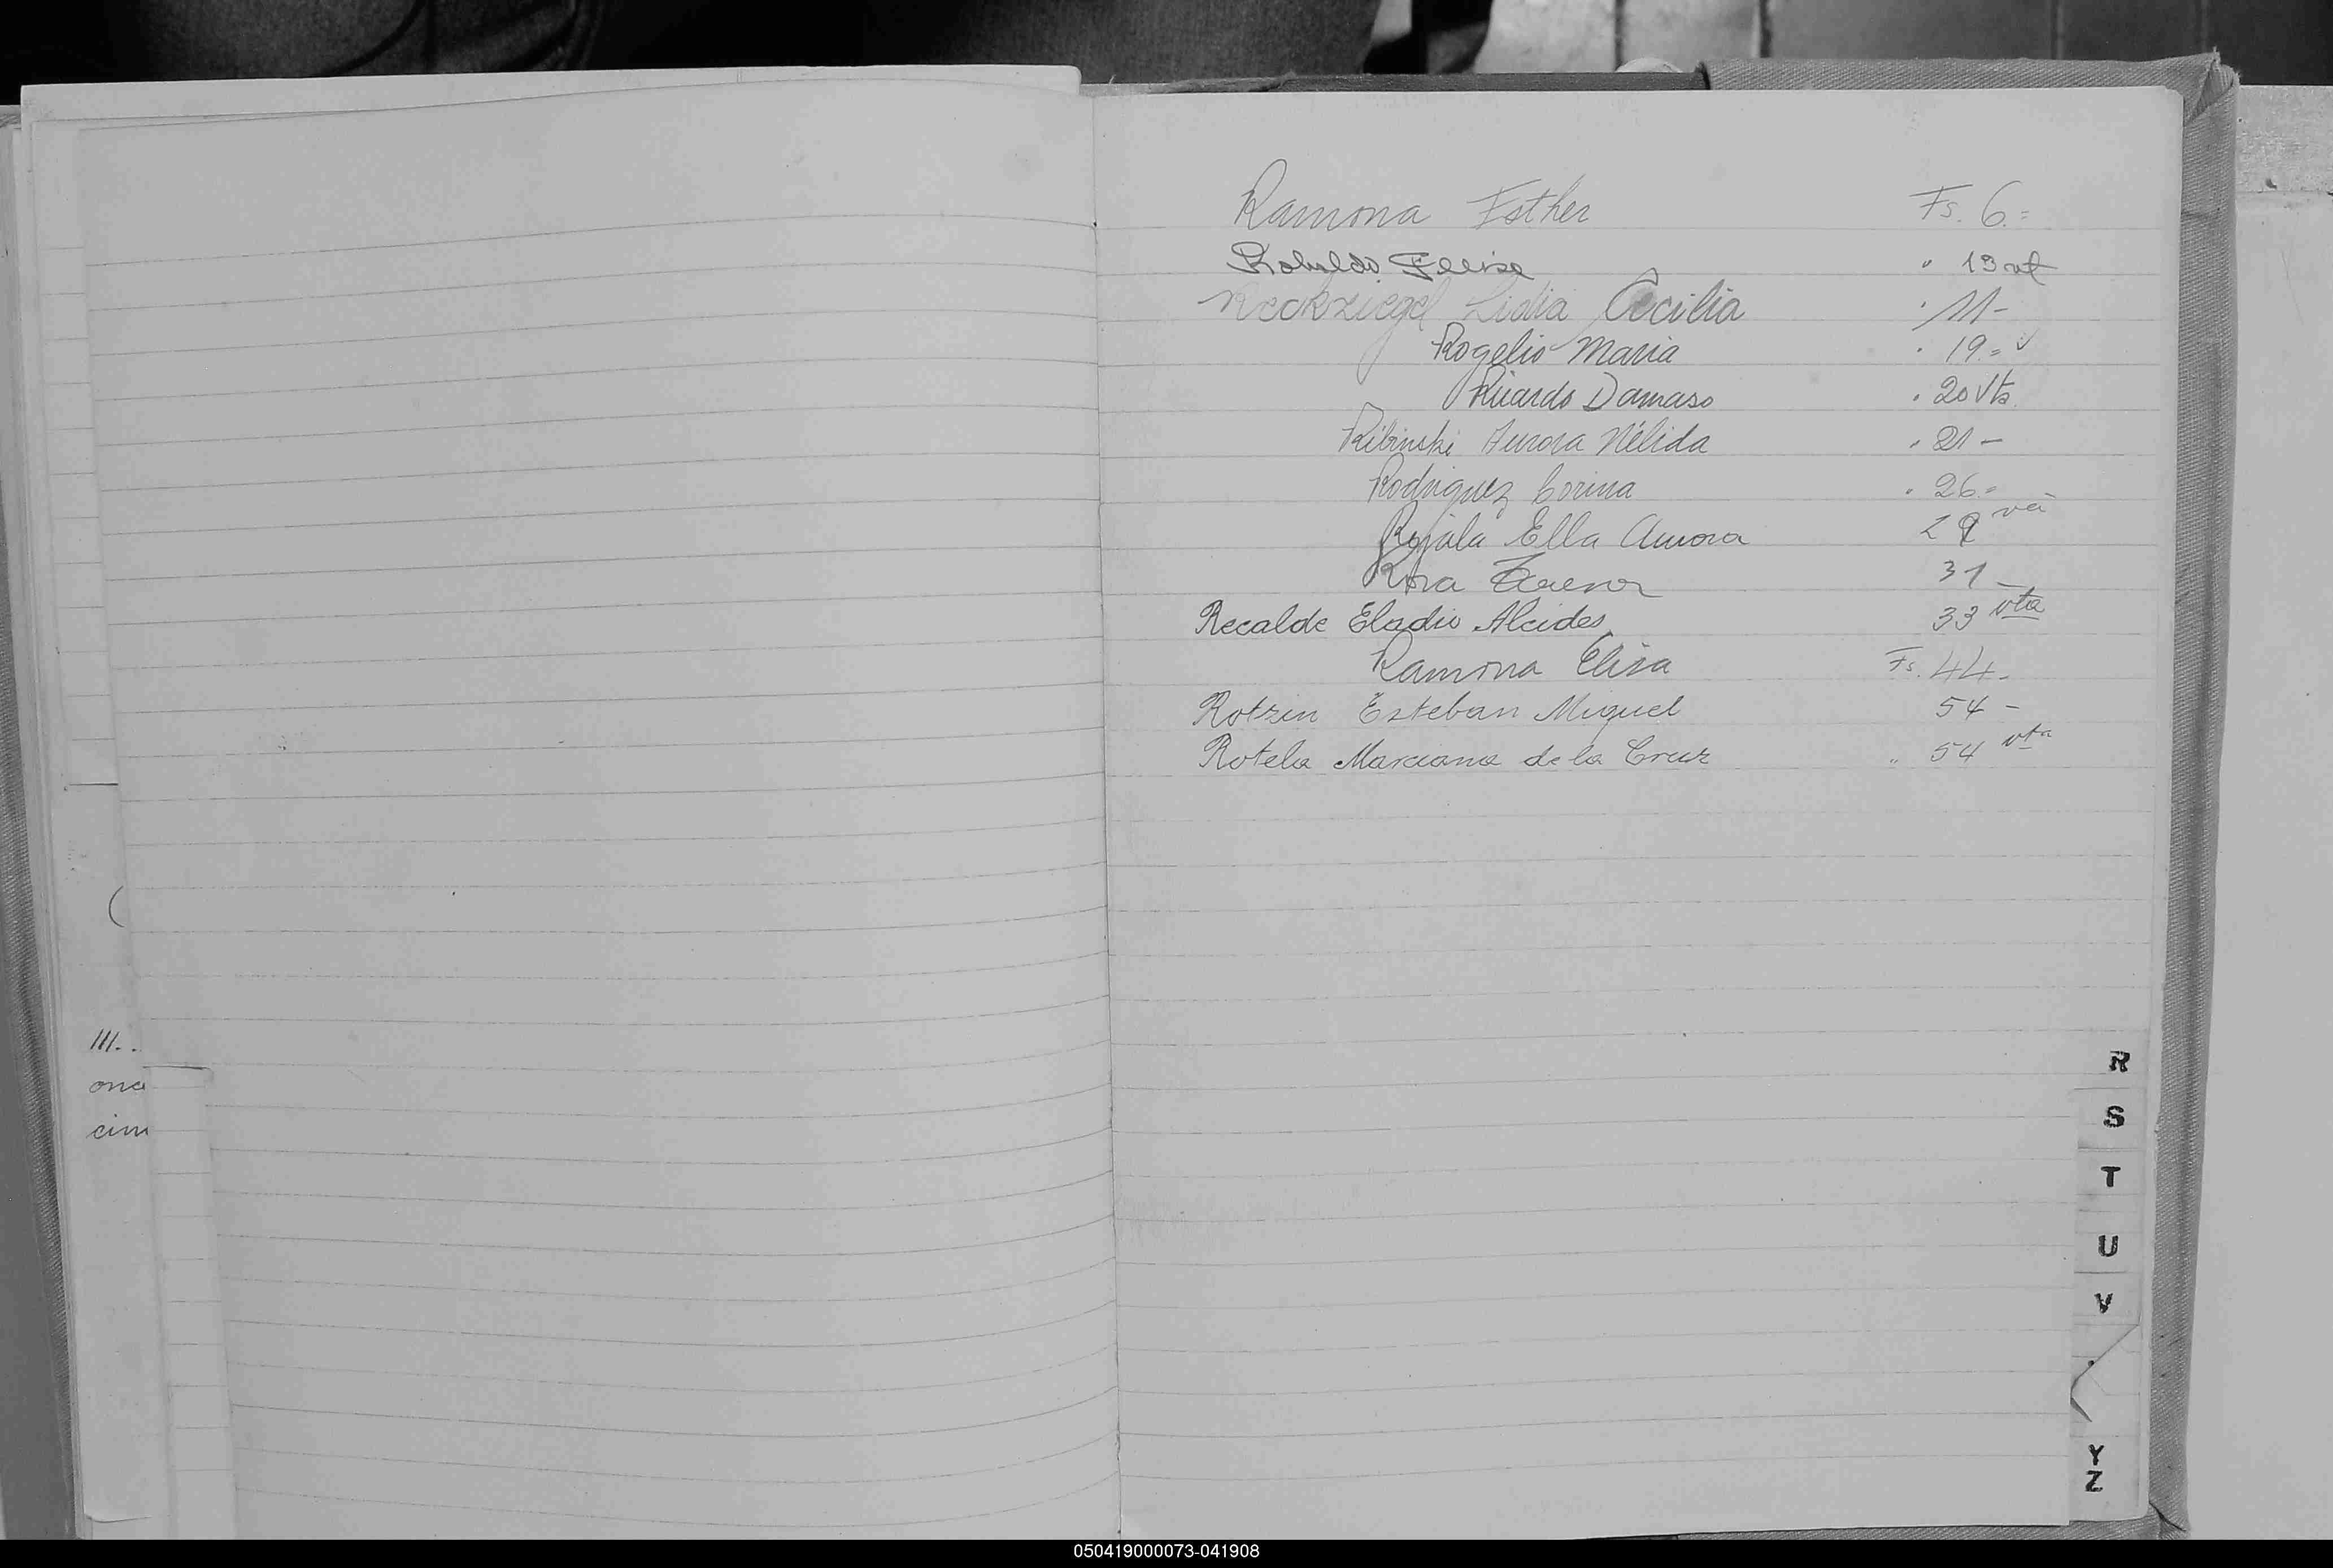 Ramona Esther Fs. 6.=
Robaldo Felisa " 13 vt
Reckziegel Lidia Cecilia " 11-
Rogelio Maria " 19.=
Ricardo Damaso " 20 Vta.
Ribinski Aurora Nélida " 21-
Rodriguez Corina " 26.=
Rojala Ella Aurora
Rosa 31-
Recalde Eladio Alcides 33 vta
Ramona Elisa Fs. 44-
Rotzin Esteban Miguel 54-
Rotela Marciana de la Cruz " 54 vta
III..
ona
cim
R
S
T
U
V
Y
Z
050419000073-041908